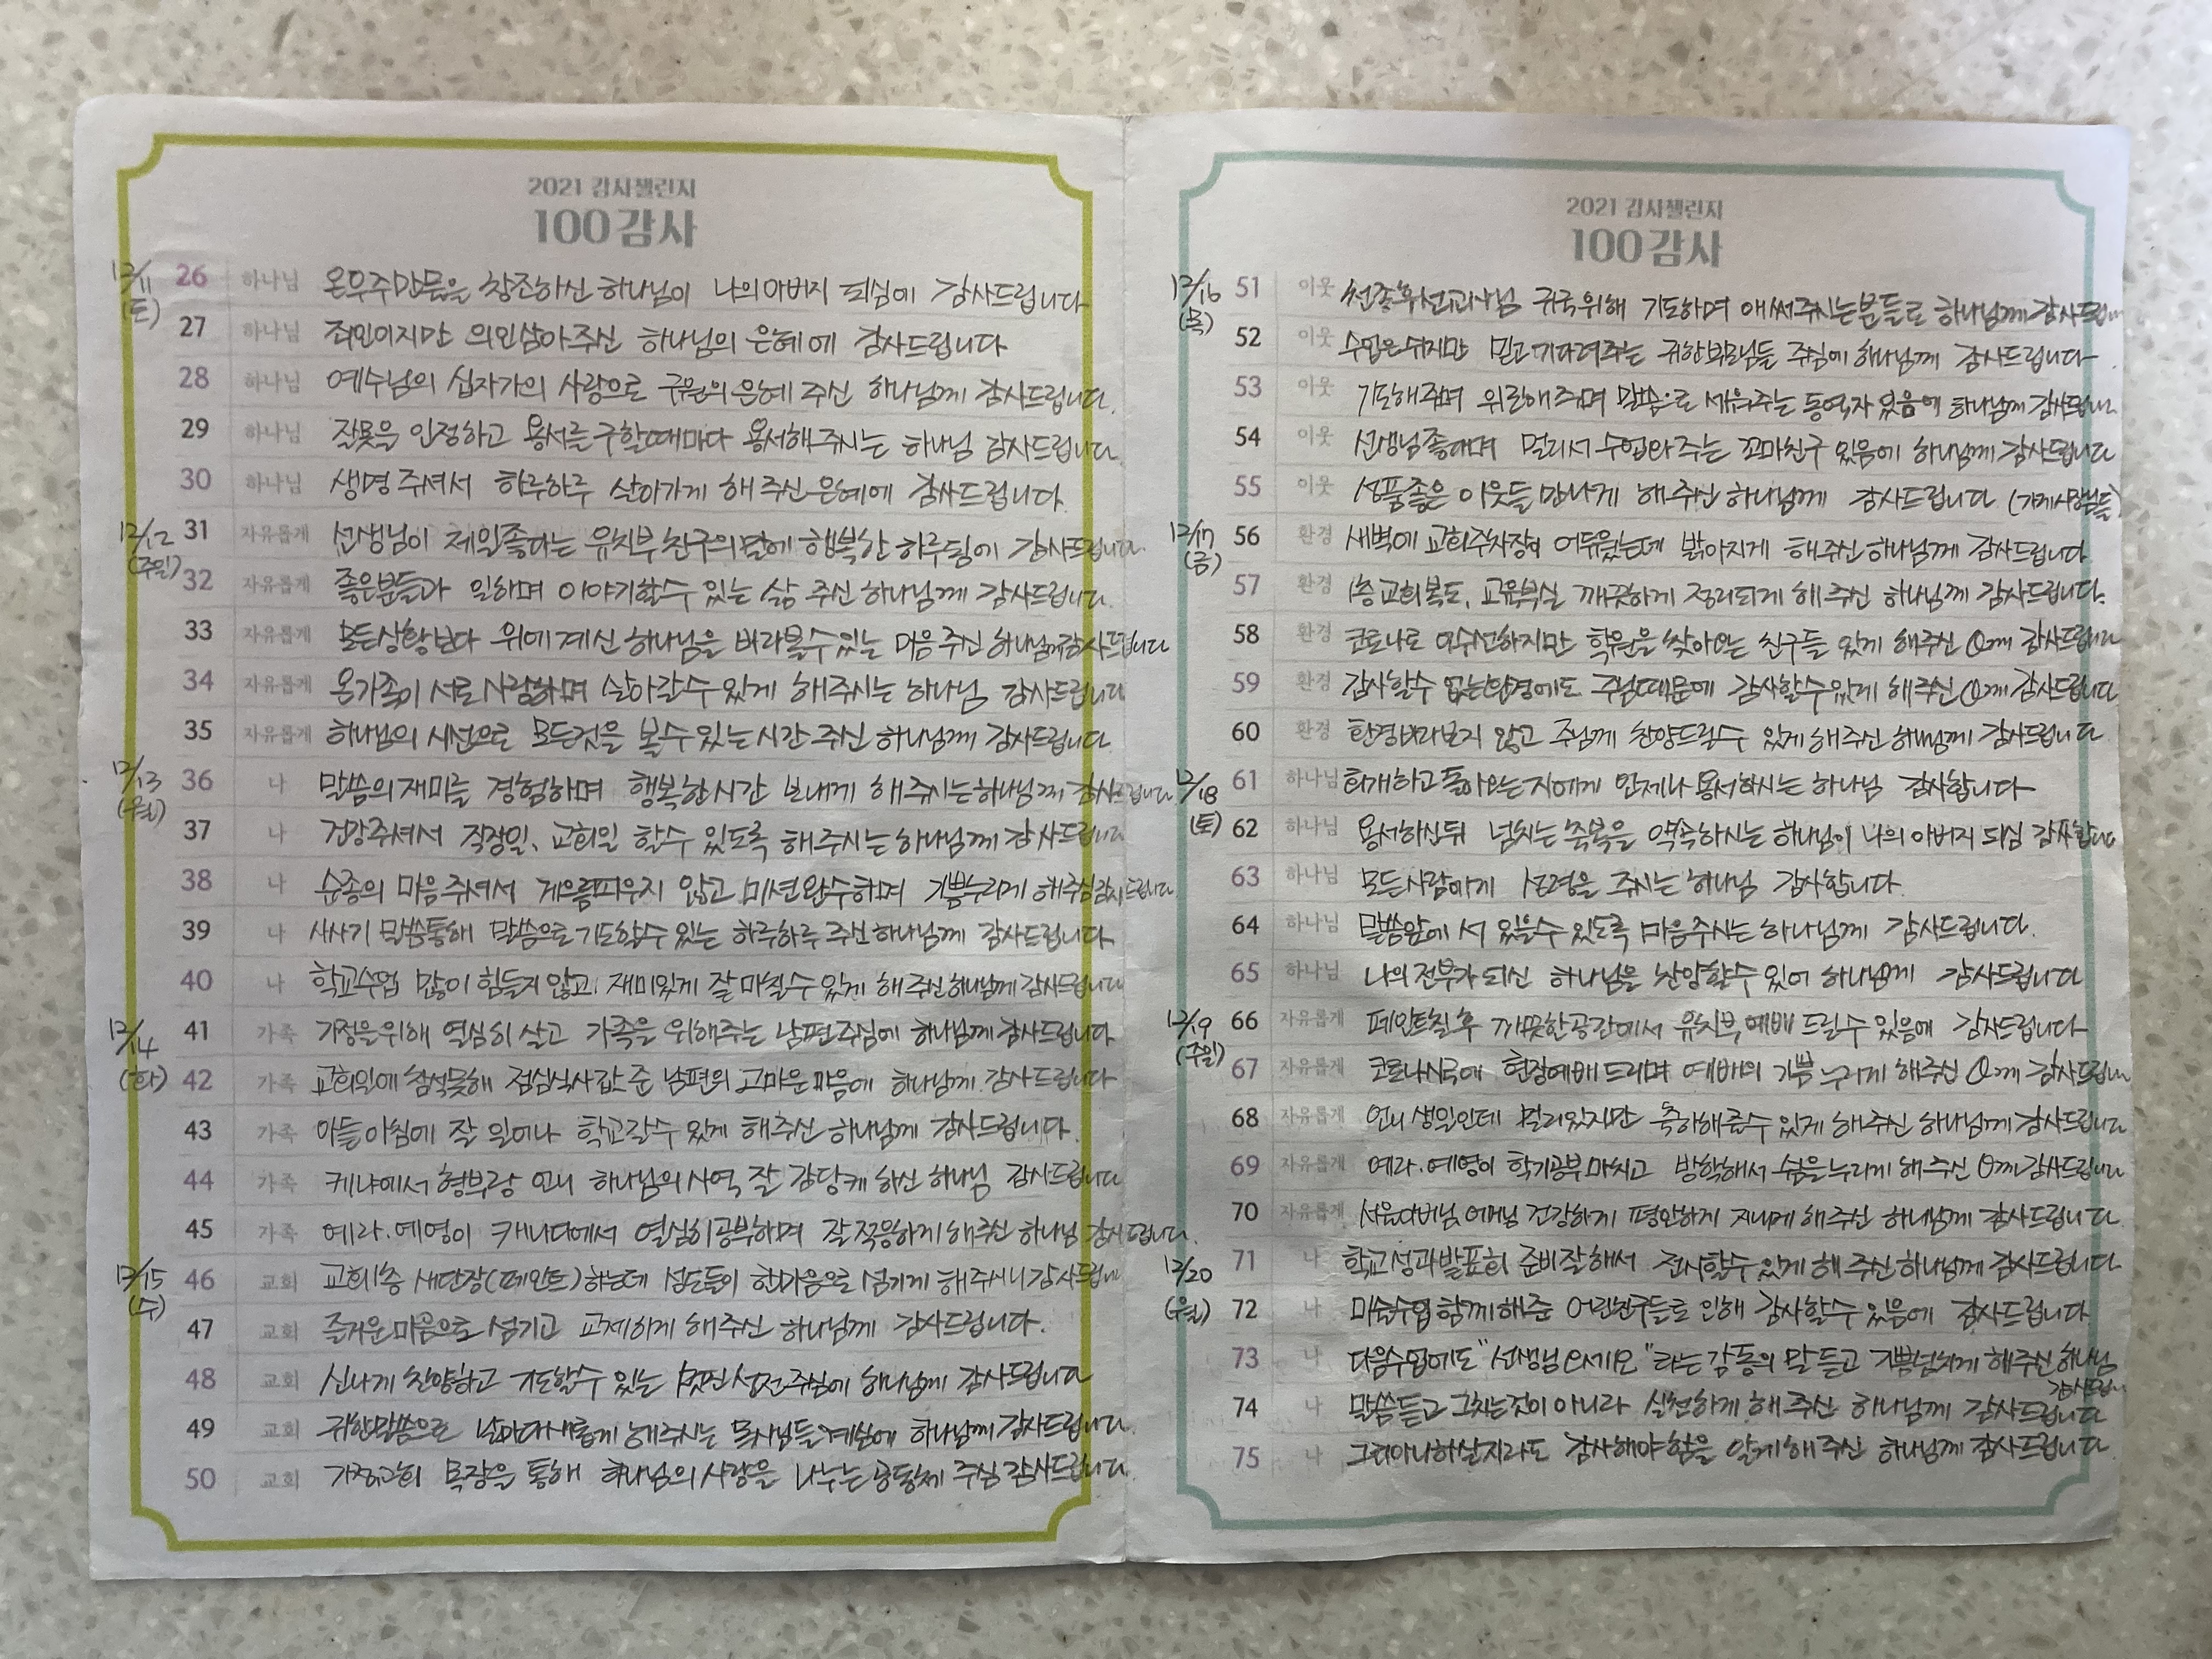 2021 감사챌린지
100감사
12/11 (토)
26 하나님 온우주만물을 창조하신 하나님이 나의 아버지 되심에 감사드립니다
27 하나님 죄인이지만 의인삼아주신 하나님의 은혜에 감사드립니다
28 하나님 예수님의 십자가의 사랑으로 구원의 은혜 주신 하나님께 감사드립니다.
29 하나님 잘못을 인정하고 용서를 구할때마다 용서해주시는 하나님 감사드립니다.
30 하나님 생명주셔서 하루하루 살아가게 해주신 은혜에 감사드립니다.
12/12 (주일)
31 자유롭게 선생님이 제일좋다는 유치부 친구의말에 행복한 하루됨에 감사드립니다.
32 자유롭게 좋은분들과 일하며 이야기할수 있는 삶 주신 하나님께 감사드립니다.
33 자유롭게 모든상황보다 위에계신 하나님을 바라볼수있는 마음주신 하나님께감사드립니다
34 자유롭게 온가족이 서로 사랑하며 살아갈수 있게 해주시는 하나님 감사드립니다
35 자유롭게 하나님의 시선으로 모든것을 볼수 있는 시간 주신 하나님께 감사드립니다
12/13 (월)
36 나 말씀의재미를 경험하며 행복한시간 보내게 해주시는하나님께 감사드립니다
37 나 건강주셔서 직장일, 교회일 할수 있도록 해주시는 하나님께 감사드립니다
38 나 순종의 마음주셔서 게으름피우지 않고 미션완수하며 기쁨누리게 해주심감사드립니다.
39 나 사사기 말씀통해 말씀으로 기도할수 있는 하루하루 주신 하나님께 감사드립니다
40 나 학교수업 많이 힘들지 않고, 재미있게 잘 마칠수 있게 해주신하나님께 감사드립니다
12/14 (화)
41 가족 가정을위해 열심히 살고 가족을 위해주는 남편주심에 하나님께 감사드립니다
42 가족 교회일에 참석못해 점심식사값 준 남편의 고마운 마음에 하나님께 감사드립니다
43 가족 아들아침에 잘 일어나 학교갈수 있게 해주신 하나님께 감사드립니다.
44 가족 케냐에서 형부랑 언니 하나님의 사역 잘 감당케 하신 하나님 감사드립니다
45 가족 예라.예영이 캐나다에서 열심히공부하며 잘적응하게 해주신 하나님 감사드립니다.
12/15 (수)
46 교회 교회1층 새단장(페인트)하는데 성도들이 한마음으로 섬기게 해주시니 감사드립니다
47 교회 즐거운마음으로 섬기고 교제하게 해주신 하나님께 감사드립니다.
48 교회 신나게 찬양하고 기도할수 있는 멋진 성전주심에 하나님께 감사드립니다
49 교회 귀한말씀으로 날마다새롭게 해주시는 목사님들계심에 하나님께 감사드립니다.
50 교회 가정교회 목장을 통해 하나님의 사랑을 나누는 공동체 주심 감사드립니다.
2021 감사챌린지
100감사
12/16 (목)
51 이웃 귀국위해 기도하며 애써주시는분들로 하나님께감사드립니다
52 이웃 수업은쉬지만 믿고 기다려주는 귀한부모님들 주심에 하나님께 감사드립니다
53 이웃 기도해주며 위로해주며 말씀으로 세워주는 동역자 있음에 하나님께 감사드립니다
54 이웃 선생님좋다며 멀리서 수업와주는 꼬마친구 있음에 하나님께 감사드립니다
55 이웃 성품좋은 이웃들 만나게 해주신 하나님께 감사드립니다 (가게사장님들)
12/17 (금)
56 환경 새벽에 교회주차장이 어두웠는데 밝아지게 해주신 하나님께 감사드립니다
57 환경 1층교회복도, 교육부실 깨끗하게 정리되게 해주신 하나님께 감사드립니다.
58 환경 코로나로 어수선하지만 학원을 찾아오는 친구들 있게 해주신 O께 감사드립니다
59 환경 감사할수 없는환경에도 주님때문에 감사할수있게 해주신 O께 감사드립니다
60 환경 환경바라보지 않고 주님께 찬양드릴수 있게 해주신 하나님께 감사드립니다
12/18 (토)
61 하나님 회개하고 돌아오는 자에게 언제나 용서하시는 하나님 감사합니다
62 하나님 용서하신뒤 넘치는 축복을 약속하시는 하나님이 나의 아버지 되심 감사합니다
63 하나님 모든사람에게 성령을 주시는 하나님 감사합니다.
64 하나님 말씀앞에 서 있을수 있도록 마음주시는 하나님께 감사드립니다.
65 하나님 나의 전부가 되신 하나님을 찬양할수 있어 하나님께 감사드립니다
12/19 (주일)
66 자유롭게 페인트칠후 깨끗한공간에서 유치부예배 드릴수 있음에 감사드립니다
67 자유롭게 코로나시국에 현장예배드리며 예배의 기쁨 누리게 해주신 O께 감사드립니다
68 자유롭게 언니 생일인데 멀리있지만 축하해줄수 있게 해주신 하나님께 감사드립니다
69 자유롭게 예라.예영이 학기공부마치고 방학해서 쉼을누리게 해주신 O께감사드립니다
70 자유롭게 서울아버님,어머님 건강하게 평안하게 지내게 해주신 하나님께 감사드립니다
12/20 (월)
71 나 학교성과발표회 준비잘해서 전시할수 있게 해주신 하나님께 감사드립니다
72 나 미술수업 함께해준 어린친구들로 인해 감사할수 있음에 감사드립니다
73 나 다음수업에도 "선생님 오세요" 라는 감동의 말 듣고 기쁨넘치게 해주신 하나님 감사드립니다
74 나 말씀듣고 그치는것이 아니라 실천하게 해주신 하나님께 감사드립니다
75 나 그리아니하실지라도 감사해야 함을 알게해주신 하나님께 감사드립니다